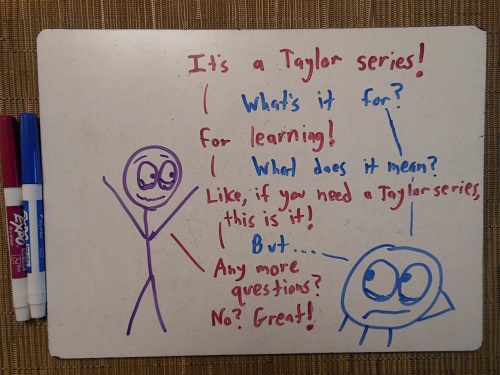 It's a Taylor series!
What's it for?
For learning!
What does it mean?
Like, if you need a Taylor series,
this is it!
But...
Any more
questions?
No? Great!
EXPO
EXPO